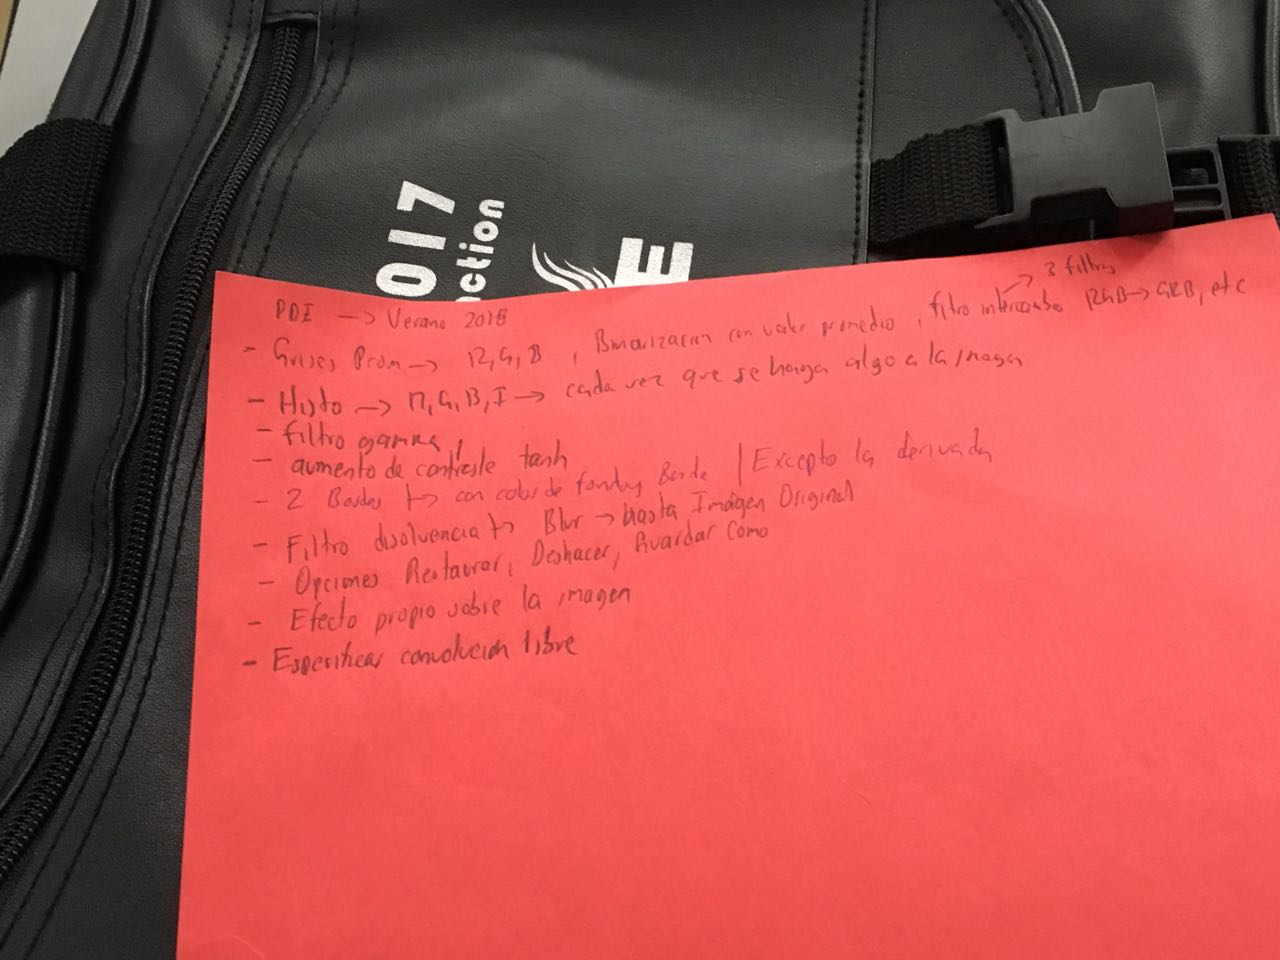 2017
nction
E
PDI → Verano 2018
→ 3 filtros
- Grises Prom → R, G, B , Binarizacion con valor promedio , filtro intercambio RGB → GRB, etc
- Histo → R, G, B, I → cada vez que se haga algo a la imagen
- filtro gamma,
- aumento de contraste tanh
- 2 Bordes → con color de fondo y Borde | Excepto la derivada
- Filtro disolvencia → Blur → hasta Imágen Original
- Opciones Restaurar, Deshacer, Guardar Como
- Efecto propio sobre la imagen
- Especificar convolución libre